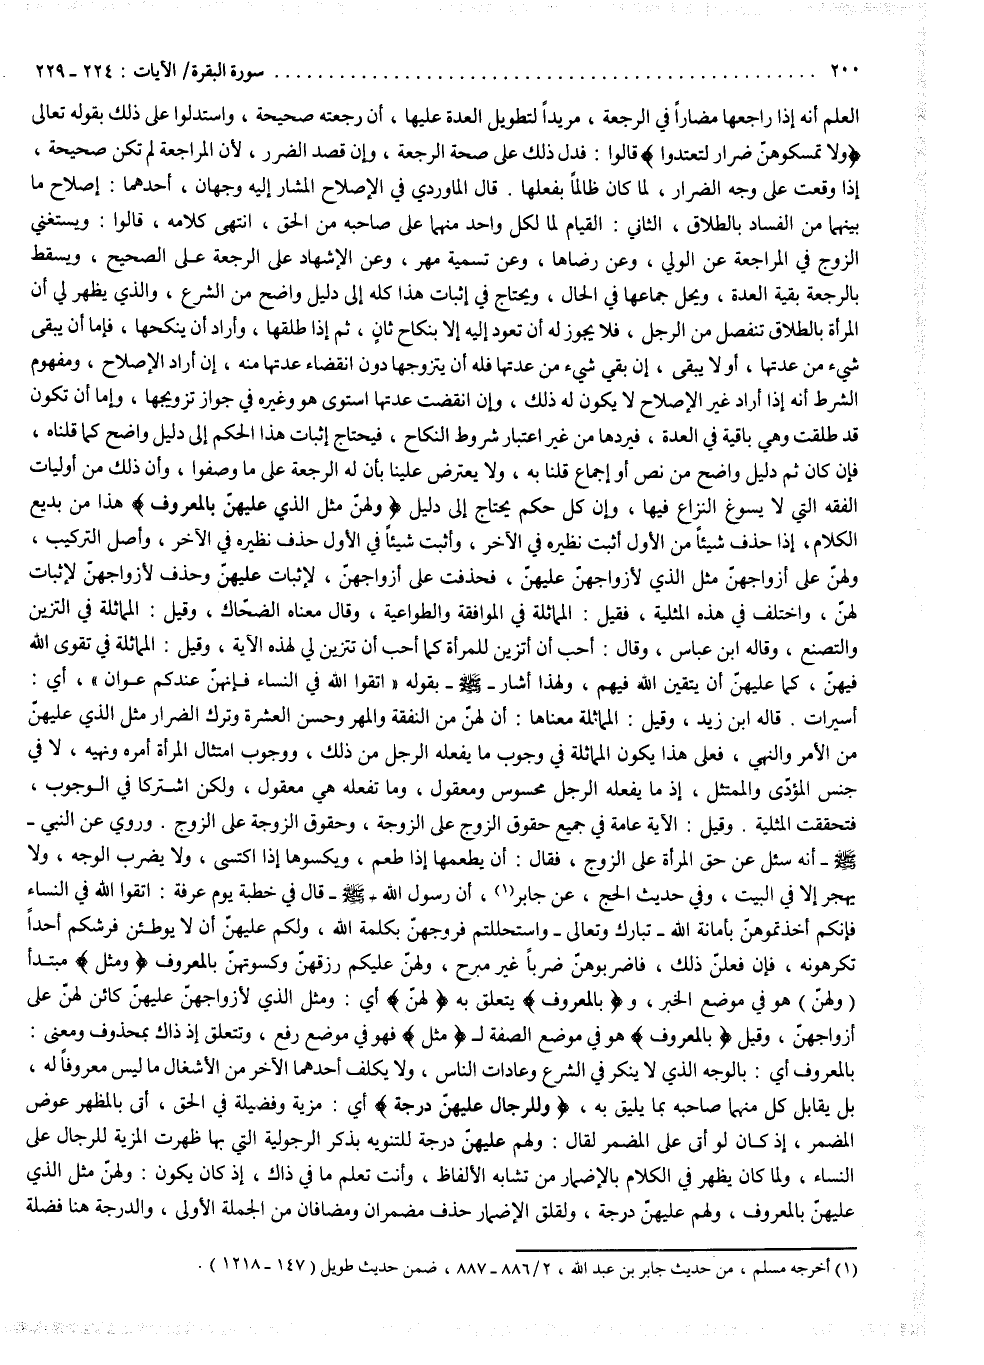 ٢٠٠ .................................................... سورة البقرة/ الآيات : ٢٢٤ ـ ٢٢٩
العلم أنه إذا راجعها مضاراً في الرجعة ، مريداً لتطويل العدة عليها ، أن رجعته صحيحة ، واستدلوا على ذلك بقوله تعالى
﴿ولا تمسكوهنّ ضرار لتعتدوا﴾ قالوا : فدل ذلك على صحة الرجعة ، وإن قصد الضرر ، لأن المراجعة لم تكن صحيحة ،
إذا وقعت على وجه الضرار ، لما كان ظالماً بفعلها . قال الماوردي في الإصلاح المشار إليه وجهان ، أحدهما : إصلاح ما
بينهما من الفساد بالطلاق ، الثاني : القيام لما لكل واحد منهما على صاحبه من الحق ، انتهى كلامه ، قالوا : ويستغني
الزوج في المراجعة عن الولي ، وعن رضاها ، وعن تسمية مهر ، وعن الإشهاد على الرجعة على الصحيح ، ويسقط
بالرجعة بقية العدة ، ويحل جماعها في الحال ، ويحتاج في إثبات هذا كله إلى دليل واضح من الشرع ، والذي يظهر لي أن
المرأة بالطلاق تنفصل من الرجل ، فلا يجوز له أن تعود إليه إلا بنكاح ثانٍ ، ثم إذا طلقها ، وأراد أن ينكحها ، فإما أن يبقى
شيء من عدتها ، أو لا يبقى ، إن بقي شيء من عدتها فله أن يتزوجها دون انقضاء عدتها منه ، إن أراد الإصلاح ، ومفهوم
الشرط أنه إذا أراد غير الإصلاح لا يكون له ذلك ، وإن انقضت عدتها استوى هو وغيره في جواز تزويجها ، وإما أن تكون
قد طلقت وهي باقية في العدة ، فيردها من غير اعتبار شروط النكاح ، فيحتاج إثبات هذا الحكم إلى دليل واضح كما قلناه ،
فإن كان ثم دليل واضح من نص أو إجماع قلنا به ، ولا يعترض علينا بأن له الرجعة على ما وصفوا ، وأن ذلك من أوليات
الفقه التي لا يسوغ النزاع فيها ، وإن كل حكم يحتاج إلى دليل ﴿ ولهنّ مثل الذي عليهنّ بالمعروف ﴾ هذا من بديع
الكلام، إذا حذف شيئاً من الأول أثبت نظيره في الآخر ، وأثبت شيئاً في الأول حذف نظيره في الآخر ، وأصل التركيب ،
ولهنّ على أزواجهنّ مثل الذي لأزواجهنّ عليهنّ ، فحذفت على أزواجهنّ ، لإثبات عليهنّ وحذف لأزواجهنّ لإثبات
لهنّ ، واختلف في هذه المثلية ، فقيل : المماثلة في الموافقة والطواعية ، وقال معناه الضحّاك ، وقيل : المماثلة في التزين
والتصنع ، وقاله ابن عباس ، وقال : أحب أن أتزين للمرأة كما أحب أن تتزين لي لهذه الآية ، وقيل : المماثلة في تقوى الله
فيهنّ ، كما عليهنّ أن يتقين الله فيهم ، ولهذا أشار ـ ﷺ ـ بقوله « اتقوا الله في النساء فإنهنّ عندكم عوان » ، أي :
أسيرات . قاله ابن زيد ، وقيل : المماثلة معناها : أن لهنّ من النفقة والمهر وحسن العشرة وترك الضرار مثل الذي عليهنّ
من الأمر والنهي ، فعلى هذا يكون المماثلة في وجوب ما يفعله الرجل من ذلك ، ووجوب امتثال المرأة أمره ونهيه ، لا في
جنس المؤدّى والممتثل ، إذ ما يفعله الرجل محسوس ومعقول ، وما تفعله هي معقول ، ولكن اشتركا في الوجوب ،
فتحققت المثلية . وقيل : الآية عامة في جميع حقوق الزوج على الزوجة ، وحقوق الزوجة على الزوج . وروي عن النبي ـ
ﷺ ـ أنه سئل عن حق المرأة على الزوج ، فقال : أن يطعمها إذا طعم ، ويكسوها إذا اكتسى ، ولا يضرب الوجه ، ولا
يهجر إلا في البيت ، وفي حديث الحج ، عن جابر(١) ، أن رسول الله ـ ﷺ ـ قال في خطبة يوم عرفة : اتقوا الله في النساء
فإنكم أخذتموهنّ بأمانة الله ـ تبارك وتعالى ـ واستحللتم فروجهنّ بكلمة الله ، ولكم عليهنّ أن لا يوطئن فرشكم أحداً
تكرهونه ، فإن فعلنّ ذلك ، فاضربوهنّ ضرباً غير مبرح ، ولهنّ عليكم رزقهنّ وكسوتهنّ بالمعروف ﴿ ومثل ﴾ مبتدأ
( ولهنّ ) هو في موضع الخبر ، و ﴿ بالمعروف ﴾ يتعلق به ﴿ لهنّ ﴾ أي : ومثل الذي لأزواجهنّ عليهنّ كائن لهنّ على
أزواجهنّ ، وقيل ﴿ بالمعروف ﴾ هو في موضع الصفة لـ ﴿ مثل ﴾ فهو في موضع رفع ، وتتعلق إذ ذاك بمحذوف ومعنى :
بالمعروف أي : بالوجه الذي لا ينكر في الشرع وعادات الناس ، ولا يكلف أحدهما الآخر من الأشغال ما ليس معروفاً له ،
بل يقابل كل منهما صاحبه بما يليق به ، ﴿ وللرجال عليهنّ درجة ﴾ أي : مزية وفضيلة في الحق ، أتى بالمظهر عوض
المضمر ، إذ كان لو أتى على المضمر لقال : ولهم عليهنّ درجة للتنويه بذكر الرجولية التي بها ظهرت المزية للرجال على
النساء ، ولما كان يظهر في الكلام بالإضمار من تشابه الألفاظ ، وأنت تعلم ما في ذاك ، إذ كان يكون : ولهنّ مثل الذي
عليهنّ بالمعروف ، ولهم عليهنّ درجة ، ولقلق الإضمار حذف مضمران ومضافان من الجملة الأولى ، والدرجة هنا فضلة
(١) أخرجه مسلم ، من حديث جابر بن عبد الله ، ٢/ ٨٨٦ ـ ٨٨٧ ، ضمن حديث طويل ( ١٤٧ ـ ١٢١٨ ) .